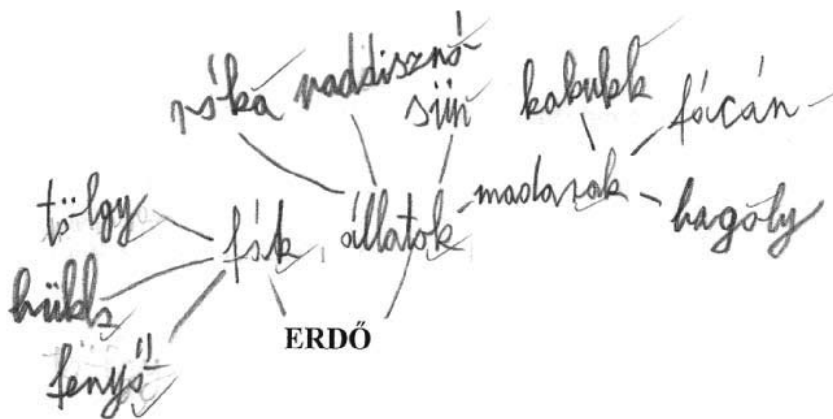 róka vaddisznó
sün kakukk fácán
tölgy fák állatok madarak bagoly
bükk
fenyő
ERDŐ